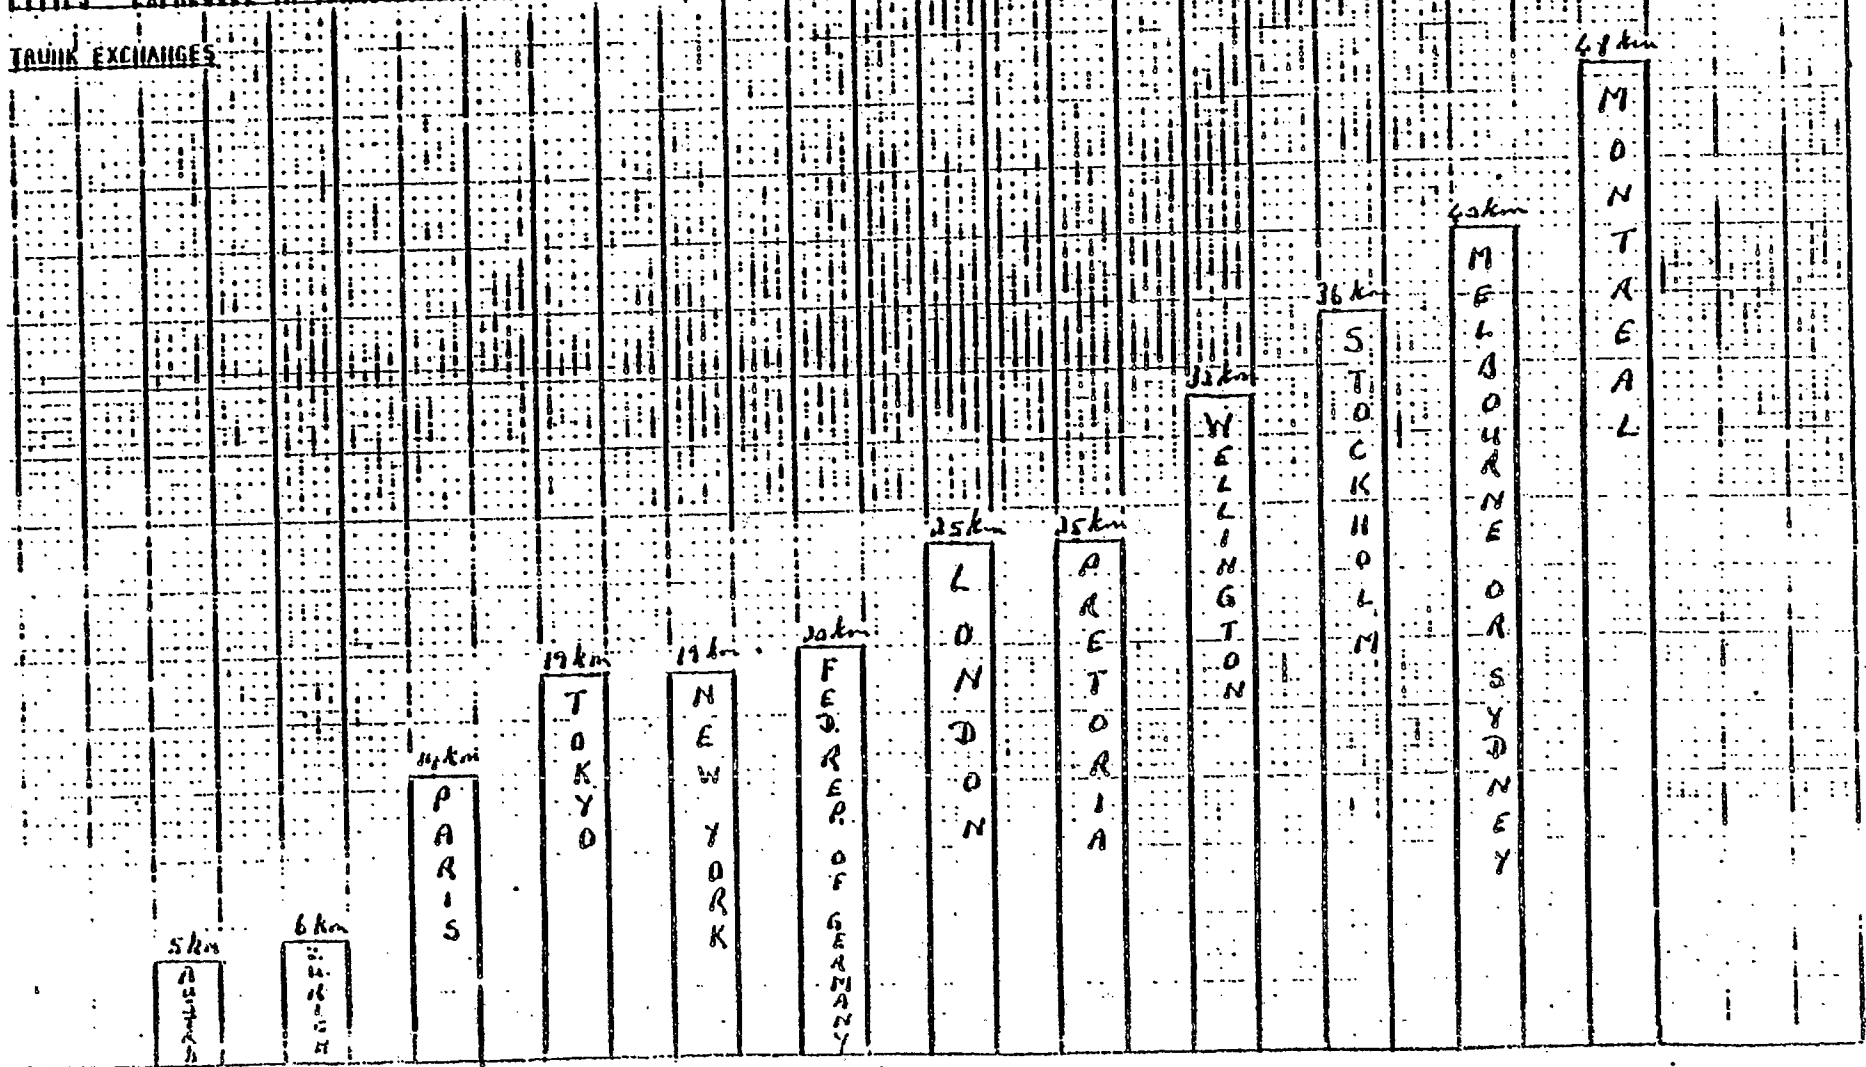 TRUNK EXCHANGES
5 km
6 km
ZURICH
PARIS
19 km
TOKYO
19 km
NEW YORK
20 km
FED. REP. OF GERMANY
25 km
LONDON
25 km
PRETORIA
32 km
WELLINGTON
36 km
STOCKHOLM
40 km
MELBOURNE OR SYDNEY
48 km
MONTREAL